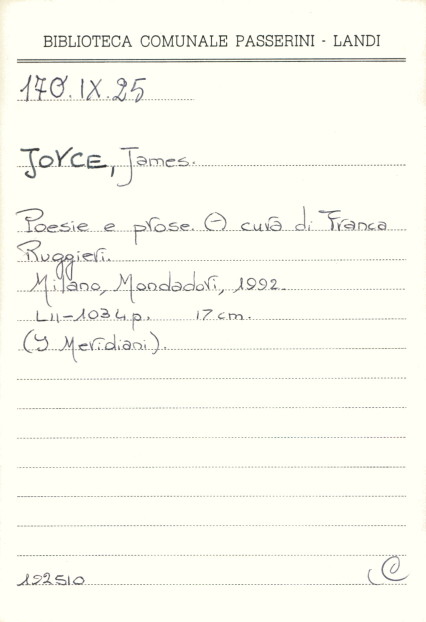 BIBLIOTECA COMUNALE PASSERINI - LANDI
170.IX.25
JOYCE, James.
Poesie e prose. A cura di Franca
Ruggieri.
Milano, Mondadori, 1992.
LII-1034 p. 17 cm.
(I Meridiani).
192510
C